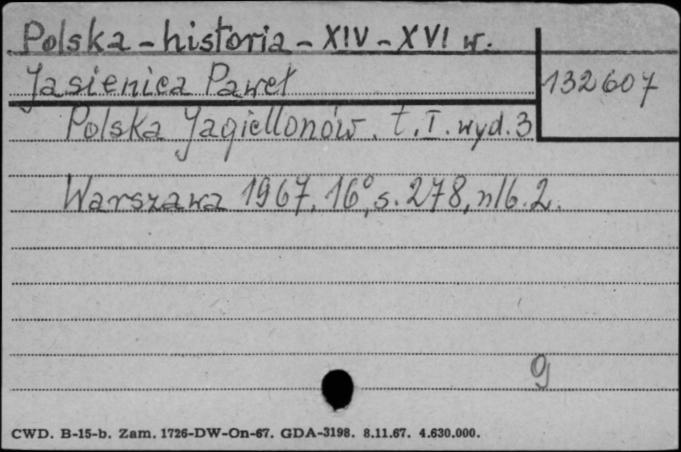 Polska - historia - XIV - XVI w.
Jasienica Paweł
132607
Polska Jagiellonów. t. I. wyd. 3
Warszawa 1967. 16°, s. 278, nlb. 2.
g
CWD. B-15-b. Zam. 1726-DW-On-67. GDA-3198. 8.11.67. 4.630.000.